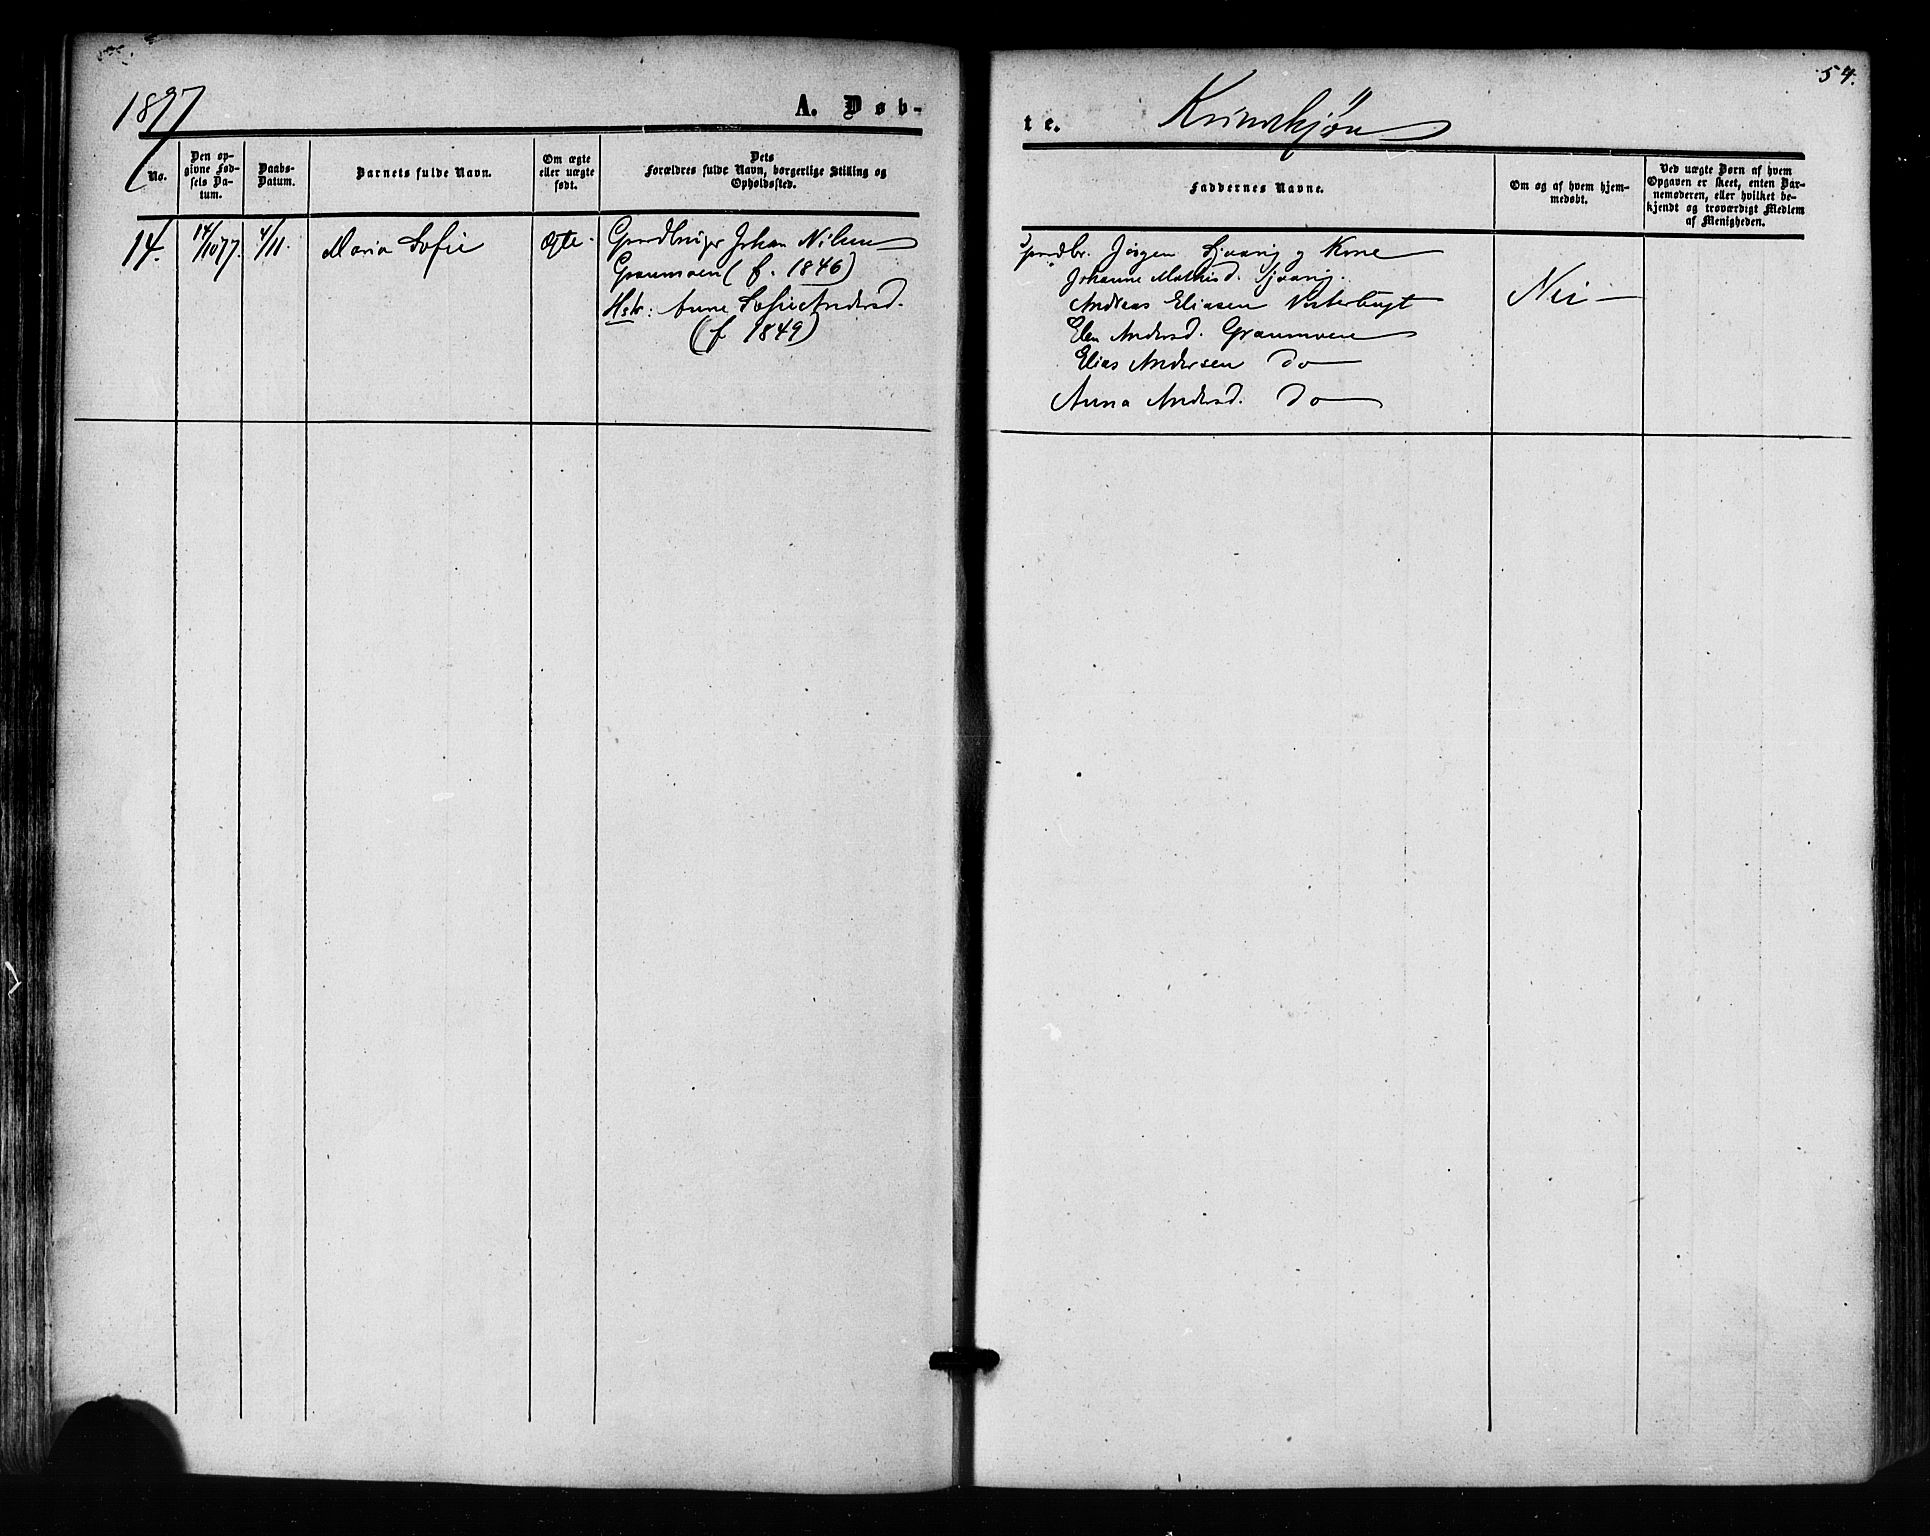 54.
1877
A. Døb-
te.
Kvindekjøn
No.
Den op-
givne Fød-
sels Da-
tum.
Daabs-
Datum.
Barnets fulde Navn.
Om ægte
eller uægte
født.
Dets
Forældres fulde Navn, borgerlige Stilling og
Opholdssted.
Faddernes Navne.
Om og af hvem hjem-
medøbt.
Ved uægte Børn af hvem
Opgaven er skeet, enten Bar-
nemoderen, eller hvilket be-
kjendt og troværdigt Medlem
af Menigheden.
14.
14/10 77.
4/11.
Maria Sofie
Ægte.
Gaardbruger Johan Nilsen
Granmoen (f. 1846)
Hstr: Anne Sofie Andersd.
(f 1849)
Gaardbr. Jørgen og Kone
Johanne Mathisd.
Andreas Eliasen
Elen Andersd. Granmoen
Elias Andersen Do
Anna Andersd. Do
Nei